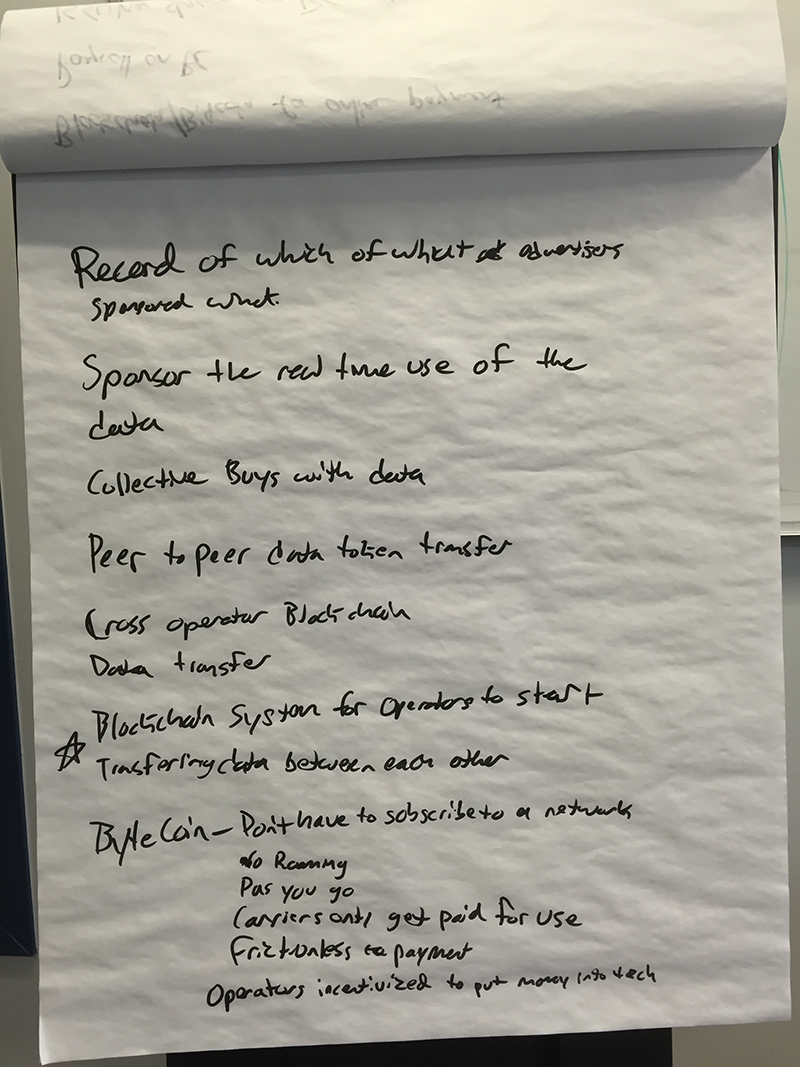 Payroll on BC
Blockchain/Bitcoin for online payment
Record of which of what advertisers
sponsored what.
Sponsor the real time use of the
data
Collective Buys with data
Peer to peer data token transfer
Cross operator Blockchain
Data transfer
Blockchain System for operators to start
Trasferring data between each other
ByteCoin - Don't have to subscribe to a network
No Roaming
Pas you go
Carriers only get paid for use
Frictionless payment
Operators incentivized to put money into tech